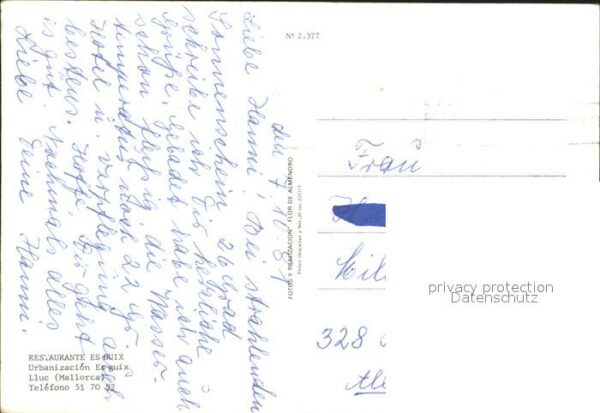 Nº 2.377
den 7.10.81
Liebe Hanni! Bei strahlenden
Sonnenschein 26 Grad
schreibe ich Dir herzliche
Grüße. Gebadet habe ich auch
schon fleißig die Wasser-
temperatur noch 22 Gr.
Hotel u. Verpflegung auch
bestens. Hoffe Dir geht
es gut. Nochmals alles
Liebe Deine Hanni.
FOTOS Y REALIZACION "FLOR DE ALMENDRO"
RESTAURANTE ES GUIX
Urbanización Es guix
Lluc (Mallorca)
Teléfono 51 70 92
Frau
328
privacy protection
Datenschutz